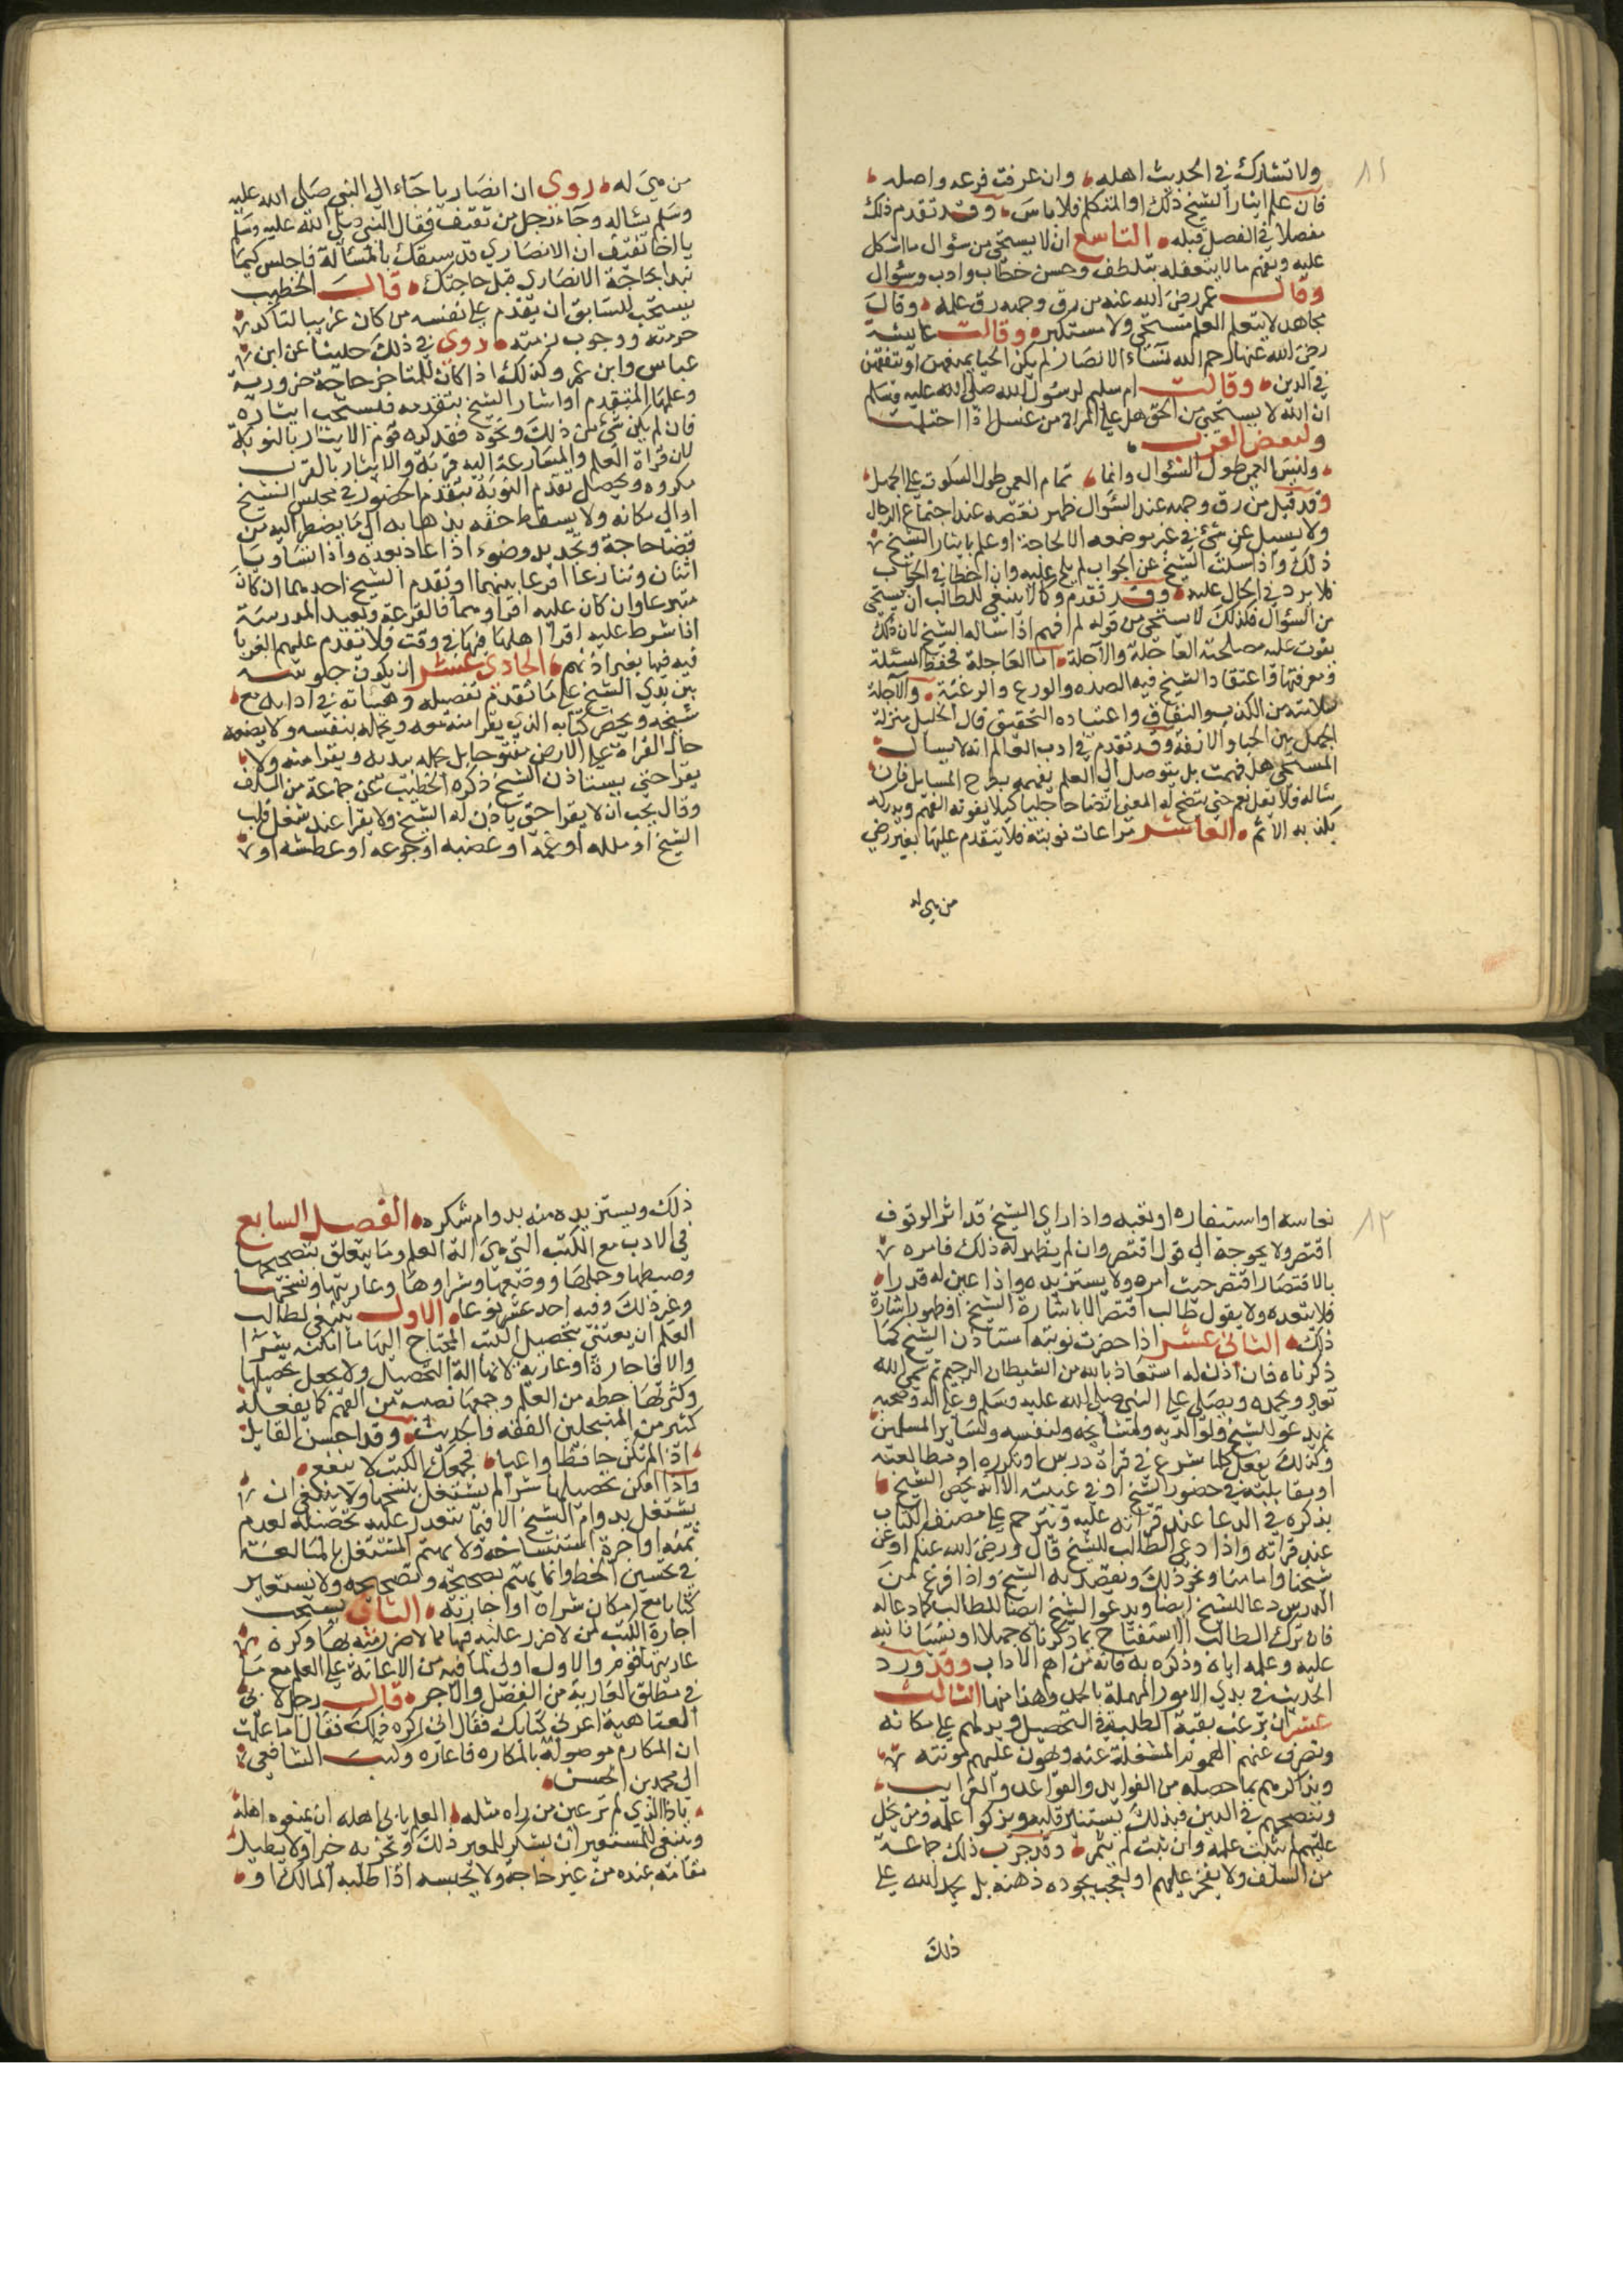 ٨١
ولا تشارك في الحديث اهله وان عرفت فرعه واصله
فان علم ايثار الشيخ ذلك او المتكلم فلا باس وقد تقدم ذلك
مفصلا في الفصل قبله التاسع ان لا يستحي من سؤال ما اشكل
عليه وتفهم ما لا يتعقله بتلطف وحسن خطاب وادب وسؤال
وقال عمر رضي الله عنه من رق وجهه رق علمه وقال
مجاهد لا يتعلم العلم مستحي ولا مستكبر وقالت عائشة
رضي الله عنها رحم الله نساء الانصار لم يكن الحيا يمنعهن ان يتفقهن
في الدين وقالت ام سليم لرسول الله صلى الله عليه وسلم
ان الله لا يستحيي من الحق هل على المراة من غسل اذا احتلمت
ولبعض العرب
وليس العمى طول السؤال وانما تمام العمى طول السكوت على الجهل
وقد قيل من رق وجهه عند السؤال ظهر نقصه عند اجتماع الرجال
ولا يسيل عن شيء في غير موضعه الا لحاجة او علم بايثار الشيخ
ذلك واذا سكت الشيخ عن الجواب لم يلح عليه وان اخطا في الجواب
فلا يرد في الحال عليه وقد تقدم وكما لا ينبغي للطالب ان يستحي
من السؤال فكذلك لا يستحي من قوله لم افهم اذا ساله الشيخ لان ذلك
يفوت عليه مصلحته العاجلة والآجلة اما العاجلة فحفظ المسئلة
ومعرفتها واعتقاد الشيخ فيه الصدق والورع والرغبة والآجلة
سلامته من الكذب والنفاق واعتياده التحقيق قال الخليل منزلة
الجهل بين الحيا والانفة وقد تقدم في ادب العالم انه لا يسال
المستحي هل فهمت بل يتوصل الى العلم بفهمه بطرح المسايل فان
ساله فلا يقل نعم حتى يتضح له المعنى اتضاحا جليا كيلا يفوته الفهم ويدركه
بكذبه الاثم العاشر مراعات نوبته فلا يتقدم عليها بغير رضي
من هي له
من هي له روى ان انصاريا جاء الى النبي صلى الله عليه
وسلم يساله وجاء رجل من ثقيف فقال النبي صلى الله عليه وسلم
يا اخا ثقيف ان الانصاري قد سبقك بالمسالة فاجلس كيما
نبدا بحاجة الانصاري قبل حاجتك قال الخطيب
يستحب للسابق ان يقدم على نفسه من كان غريبا لتاكد
حرمته ووجوب ذمته روى في ذلك حديثا عن ابن
عباس وابن عمر وكذلك اذا كان للمتاخر حاجة ضرورية
وعلمها المتقدم او اشار الشيخ بتقدمه فيستحب ايثاره
فان لم يكن شيء من ذلك ونحوه فقد كره قوم الايثار بالنوبة
لان قراة العلم والمسارعة اليه قربة والايثار بالقرب
مكروه وتحصل تقدم النوبة بتقدم الحضور في مجلس الشيخ
او الى مكانه ولا يسقط حقه بذهابه الى ما يضطر اليه من
قضا حاجة وتجديد وضوء اذا عاد بعده واذا تساويا
اثنان وتنازعا اقرع بينهما او يقدم الشيخ احدهما ان كان
متبرعا وان كان عليه اقراوهما فالقرعة ومعيد المدرسة
اذا شرط عليه اقرا اهلها فيها في وقت فلا تقدم عليهم الغربا
فيه فيها بغير اذنهم الحادي عشر ان يكون جلوسه
بين يدي الشيخ على ما تقدم تفصيله وهيئاته في ادابه مع
شيخه ويحضر كتابه الذي يقرا منه معه ويحمله بنفسه ولا يضعه
حال القراة على الارض مفتوحا بل يحمله بيديه ويقرا منه ولا
يقرا حتى يستاذن الشيخ ذكره الخطيب عن جماعة من السلف
وقال يجب ان لا يقرا حتى ياذن له الشيخ ولا يقرا عند شغل قلب
الشيخ او ملله او غمه او غضبه او جوعه او عطشه او
٨٢
نعاسه او استنفاره او تعبه واذا راى الشيخ قد اثر الوقوف
اقتصر ولا يحوجه الى قول اقتصر وان لم يظهر له ذلك فامره
بالاقتصار اقتصر حيث امره ولا يستزيده واذا عين له قدرا
فلا يتعده ولا يقول طالب اقتصر الا باشارة الشيخ او ظهور اشارة
ذلك الثاني عشر اذا حضرت نوبته استاذن الشيخ كما
ذكرناه فان اذن له استعاذ بالله من الشيطان الرجيم ثم سمى الله
تعالى ويحمده ويصلي على النبي صلى الله عليه وسلم وعلى اله وصحبه
ثم يدعو للشيخ ولوالديه ولمشايخه ولنفسه ولساير المسلمين
وكذلك يفعل كلما شرع في قراة درس او تكراره او مطالعته
او مقابلته في حضور الشيخ او في غيبته الا انه يخص الشيخ
بذكره في الدعا عند قراته عليه ويترحم على مصنف الكتاب
عند قراته واذا دعى الطالب للشيخ قال ورضي الله عنكم او عن
شيخنا وامامنا ونحو ذلك ويقصد به الشيخ واذا فرغ من
الدرس دعا للشيخ ايضا ويدعو الشيخ ايضا للطالب كما دعا له
فان ترك الطالب الاستفتاح بما ذكرناه جهلا او نسيانا نبه
عليه وعلمه اياه وذكره به فانه من اهم الاداب وقد ورد
الحديث في بدي الامور المهمة بالحمد وهذا منها الثالث
عشر ان يرغب بقية الطلبة في التحصيل ويدلهم على مكانه
ويصرف عنهم الهموم المشغلة عنه ويهون عليهم مونته
ويذاكرهم بما حصله من الفوايد والقواعد والغرايب
وينصحهم في الدين فبذلك يستنير قلبه ويزكوا علمه ومن بخل
عليهم لم يثبت علمه وان ثبت لم يثمر وقد جرب ذلك جماعة
من السلف ولا يفخر عليهم او يعجب بجودة ذهنه بل يحمد الله على
ذلك
ذلك ويستزيده منه بدوام شكره الفصل السابع
في الادب مع الكتب التي هي الة العلم وما يتعلق بتصحيحها
وضبطها وحملها ووضعها وشراوها وعاريتها ونسخها
وغير ذلك وفيه احد عشر نوعا الاول ينبغي لطالب
العلم ان يعتني بتحصيل الكتب المحتاج اليها ما امكنه بشرا
والا فاجارة او عارية لانها الة التحصيل ولا يجعل تحصيلها
وكثرتها حظه من العلم وجمعها نصيبه من الفهم كما يفعله
كثير من المنتحلين الفقه والحديث وقد احسن القايل
اذا لم تكن حافظا واعيا فجمعك للكتب لا ينفع
واذا امكن تحصيلها شرا لم يشتغل بنسخها ولا ينبغي ان
يشتغل بدوام الشيخ الا فيما يتعذر عليه تحصيله لعدم
ثمنه او اجرة استنساخه ولا يهتم المشتغل بالمبالغة
في تحسين الخط وانما يهتم بصحيحه وتصحيحه ولا يستعير
كتابا مع امكان شراه او اجارته الثاني يستحب
اجارة الكتب لمن لا ضرر عليه فيها ممن لا ضرر منه بها وكره
عاريتها قوم والاول اولى لما فيه من الاعانة على العلم مع ما
في مطلق العارية من الفضل والاجر قال رجل لابي
العتاهية اعرني كتابك فقال اني اكره ذلك فقال اما علمت
ان المكارم موصولة بالمكاره فاعاره وكتب الشافعي
الى محمد بن الحسن
يا ذا الذي لم تر عين من راه مثله العلم يابى اهله ان يمنعوه اهله
وينبغي للمستعير ان يشكر للمعير ذلك ويجزيه خيرا ولا يطيل
مقامه عنده من غير حاجة ولا يحبسه اذا طلبه المالك او